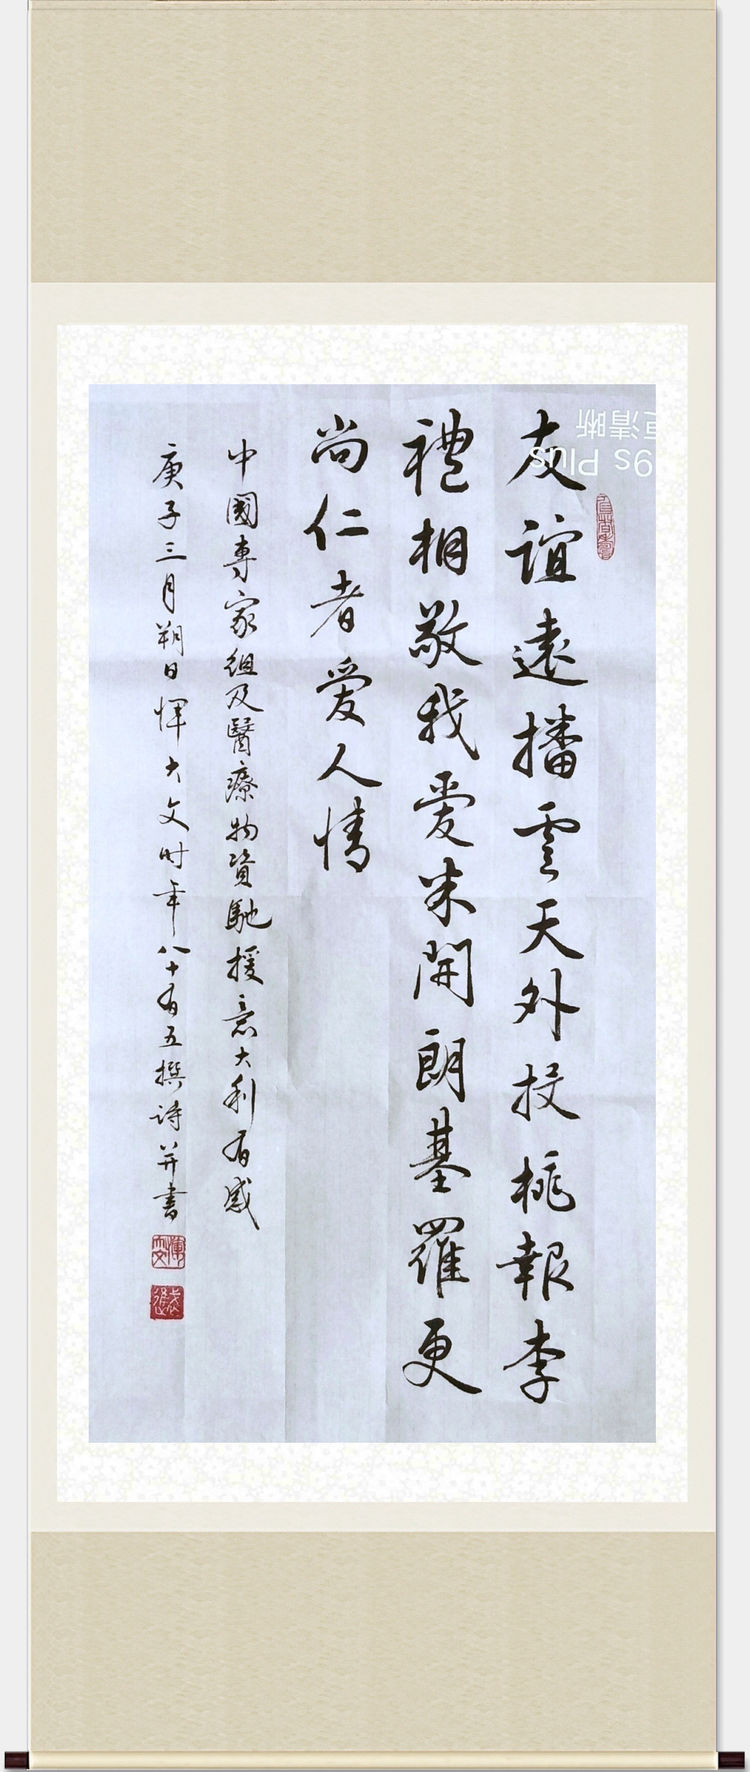 友誼遠播雲天外投桃報李
禮相敬我爱米開朗基羅更
尚仁者爱人情
中國專家組及醫療物資馳援意大利有感
庚子三月朔日惲大文时年八十有五撰詩并書
9s Plus
清晰